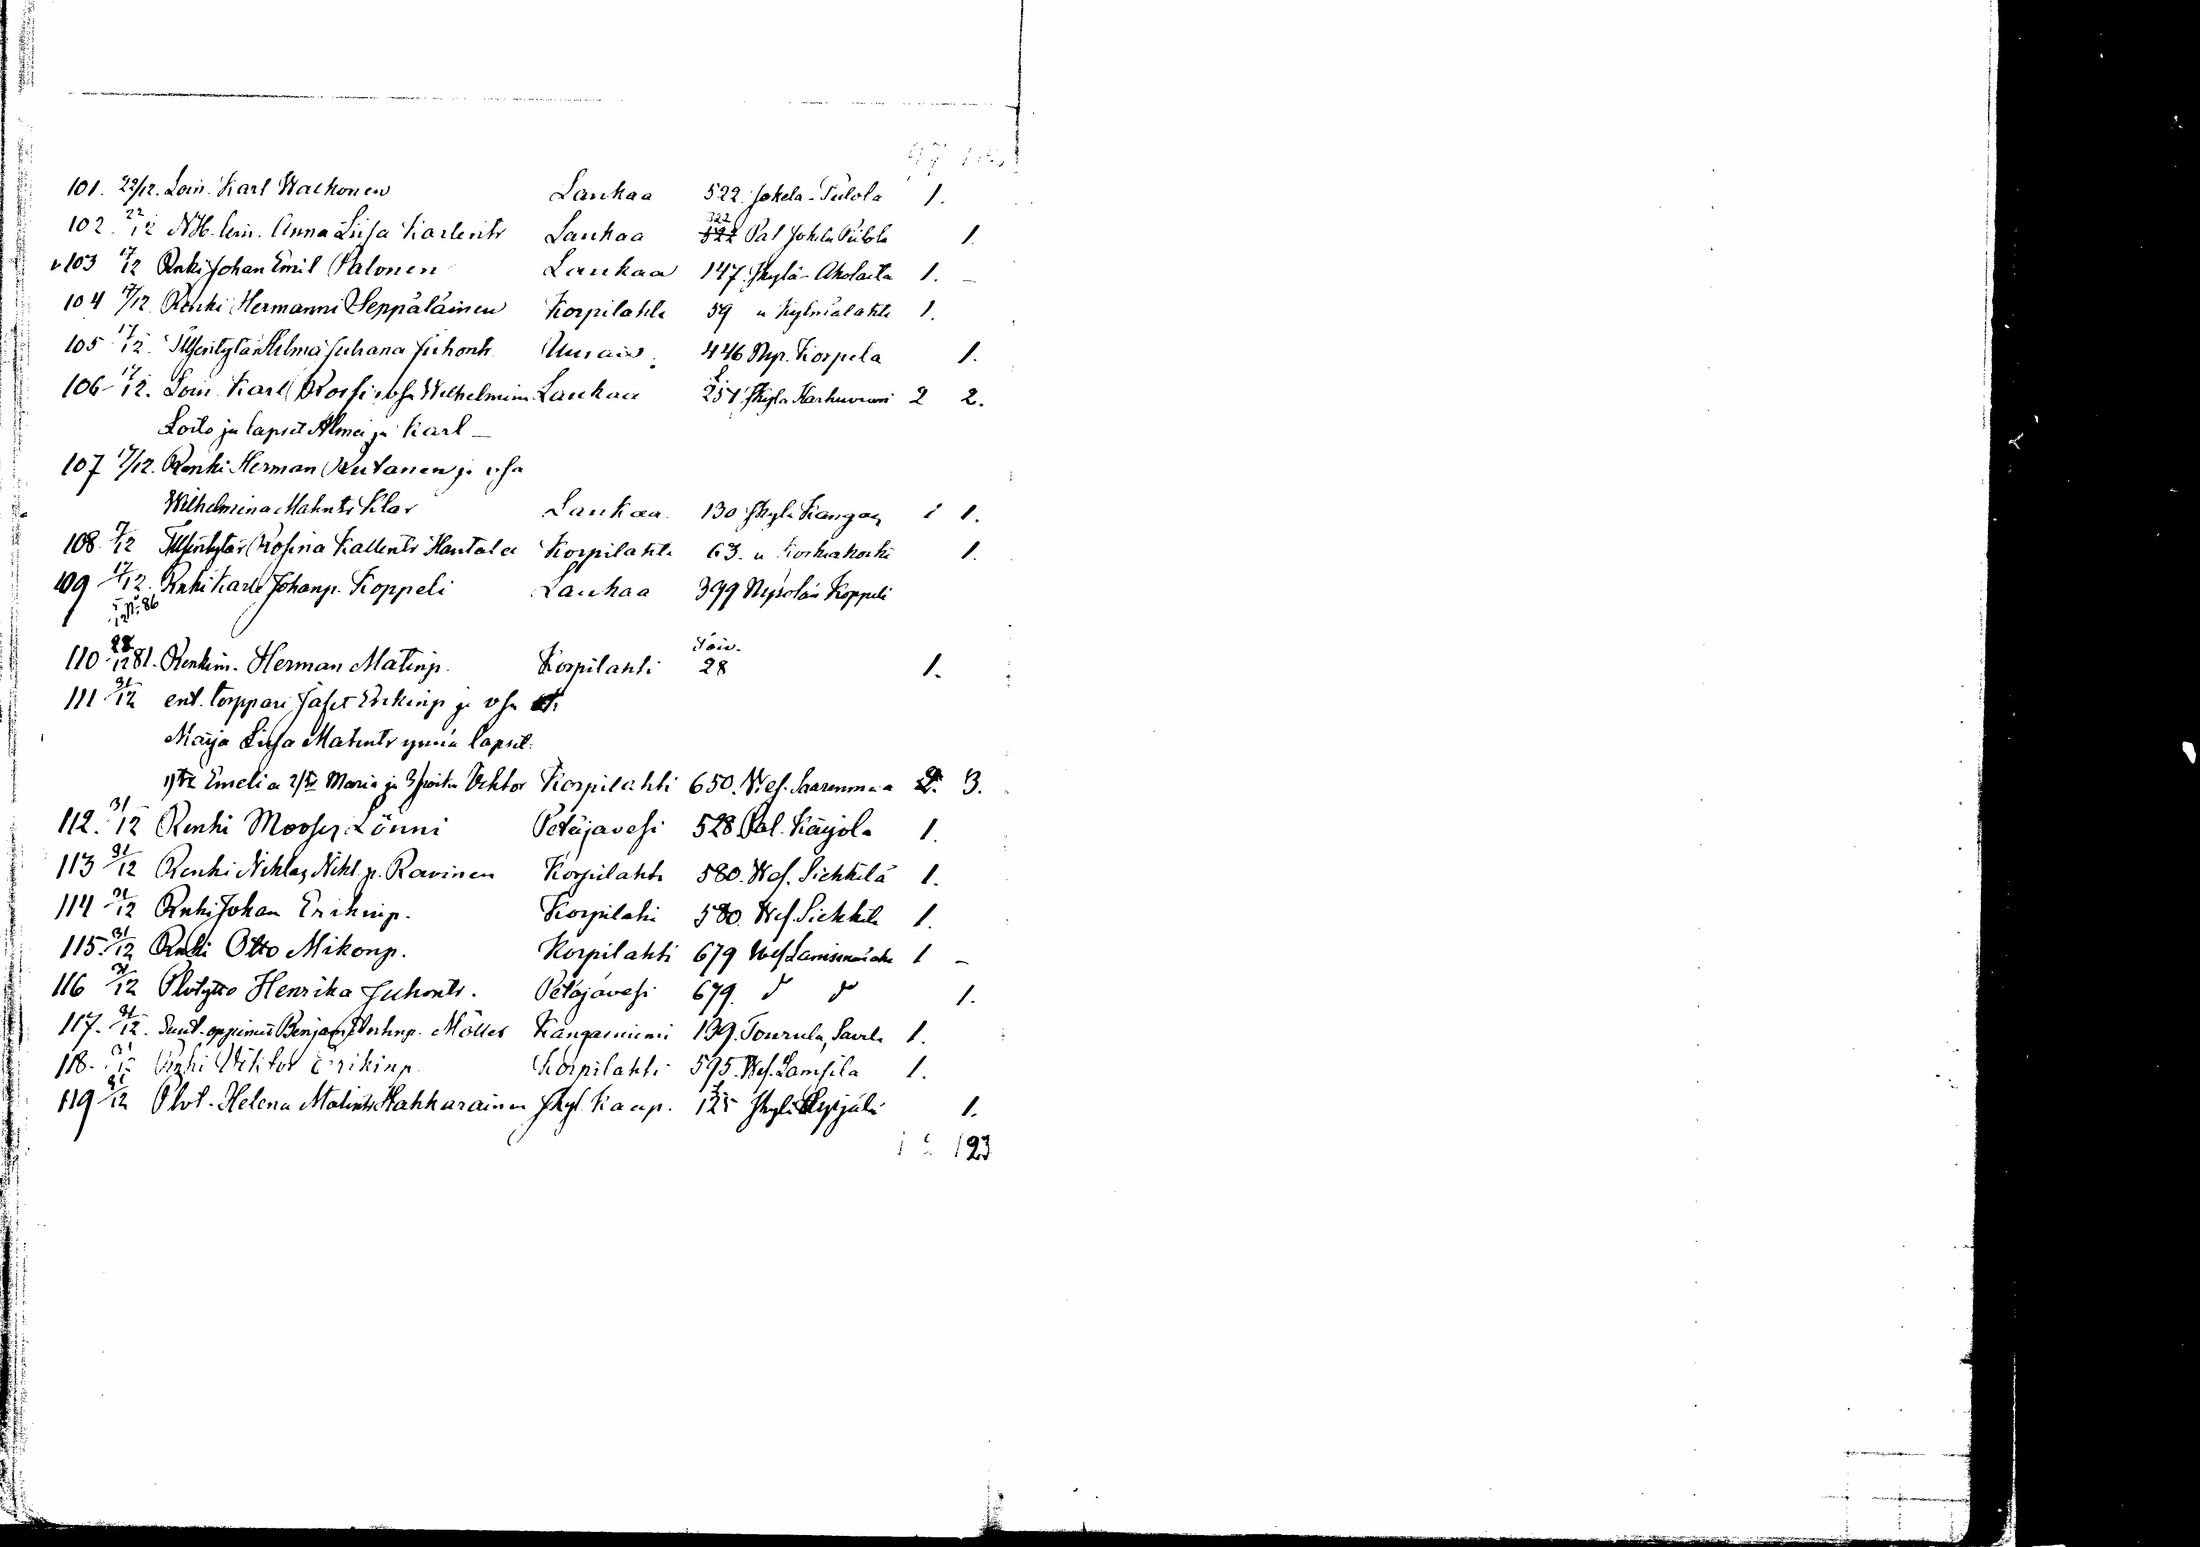 101. 22/12. Loin. Karl Wackonen Laukaa 522. Jokela-Pulola 1.
102. 22/12 Anna Liisa Karlentr Laukaa 322 Pal Jokela Pulola 1.
103 17/12 Renki Johan Emil Palonen Laukaa 147. Jkylä-Aholaita 1. –
104 17/12. Renki Hermanni Seppäläinen Korpilahti 59 u Kylmälahti 1.
105 17/12. Juhana Juhont. Uurais. 446 Nyr. Korpela 1.
106 17/12. Loin. Karl Rossi vsa Wilhelmina Laukaa 257 Jkylä 2 2.
Loito ja lapset Alma ja Karl –
107 17/12. Renki Herman Rutanen ja vsa
Wilhelmina Matintr Klar Laukaa 130 Jkylä Kangas 1 1.
108. 17/12 Itsellistytär Rosina Kallentr Hautala Korpilahti 63. u 1.
109 17/12. Renki Karl Johanp. Koppeli Laukaa 399 Koppeli
110 28/12 81. Renkim. Herman Matinp. Korpilahti 28 1.
111 31/12 ent. torppari Jafet Erikinp ja vsa
Maija Liisa Matintr ynnä lapset:
1/tr Emelia 2/tr Maria ja 3/poika Viktor Korpilahti 650. Wes. Saarenmaa 2. 3.
112. 31/12 Renki Mooses Lönni Petäjävesi 528 Pal. Karjola 1.
113 31/12 Renki Niklas Nikl.p. Ravinen Korpilahti 580. Wes. Siekkilä 1.
114 31/12 Renki Johan Erikinp. Korpilahi 580. Wes. Siekkilä 1.
115. 31/12 Renki Otto Mikonp. Korpilahti 679 Wes. 1 –
116 31/12 Plvtyttö Henrika Juhontr. Petäjävesi 679. d d 1.
117. 31/12. Suut. oppimies Benjam Möller Kangasniemi 139. Tourula, Savela 1.
118. 31/12 Renki Viktor Erikinp. Korpilahti 595. Wes. Lamsila 1.
119 31/12 Plvt. Helena Matintr Hahkarainen Jkyl. Kaup. 125 Jkylä Syrjälä 1.
123